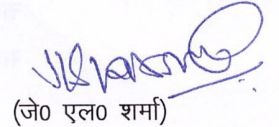 (जे० एल० शर्मा)